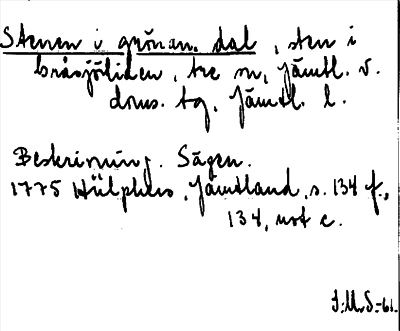 Stenen i grönan dal, sten i
bråsjöliden, tre m, Jämtl. v.
doms. tg, Jämtl. l.
Beskrivning. Sägen.
1775 Hülphers, Jämtland, s. 134 f.,
134, not c.
J.M.S.-61.